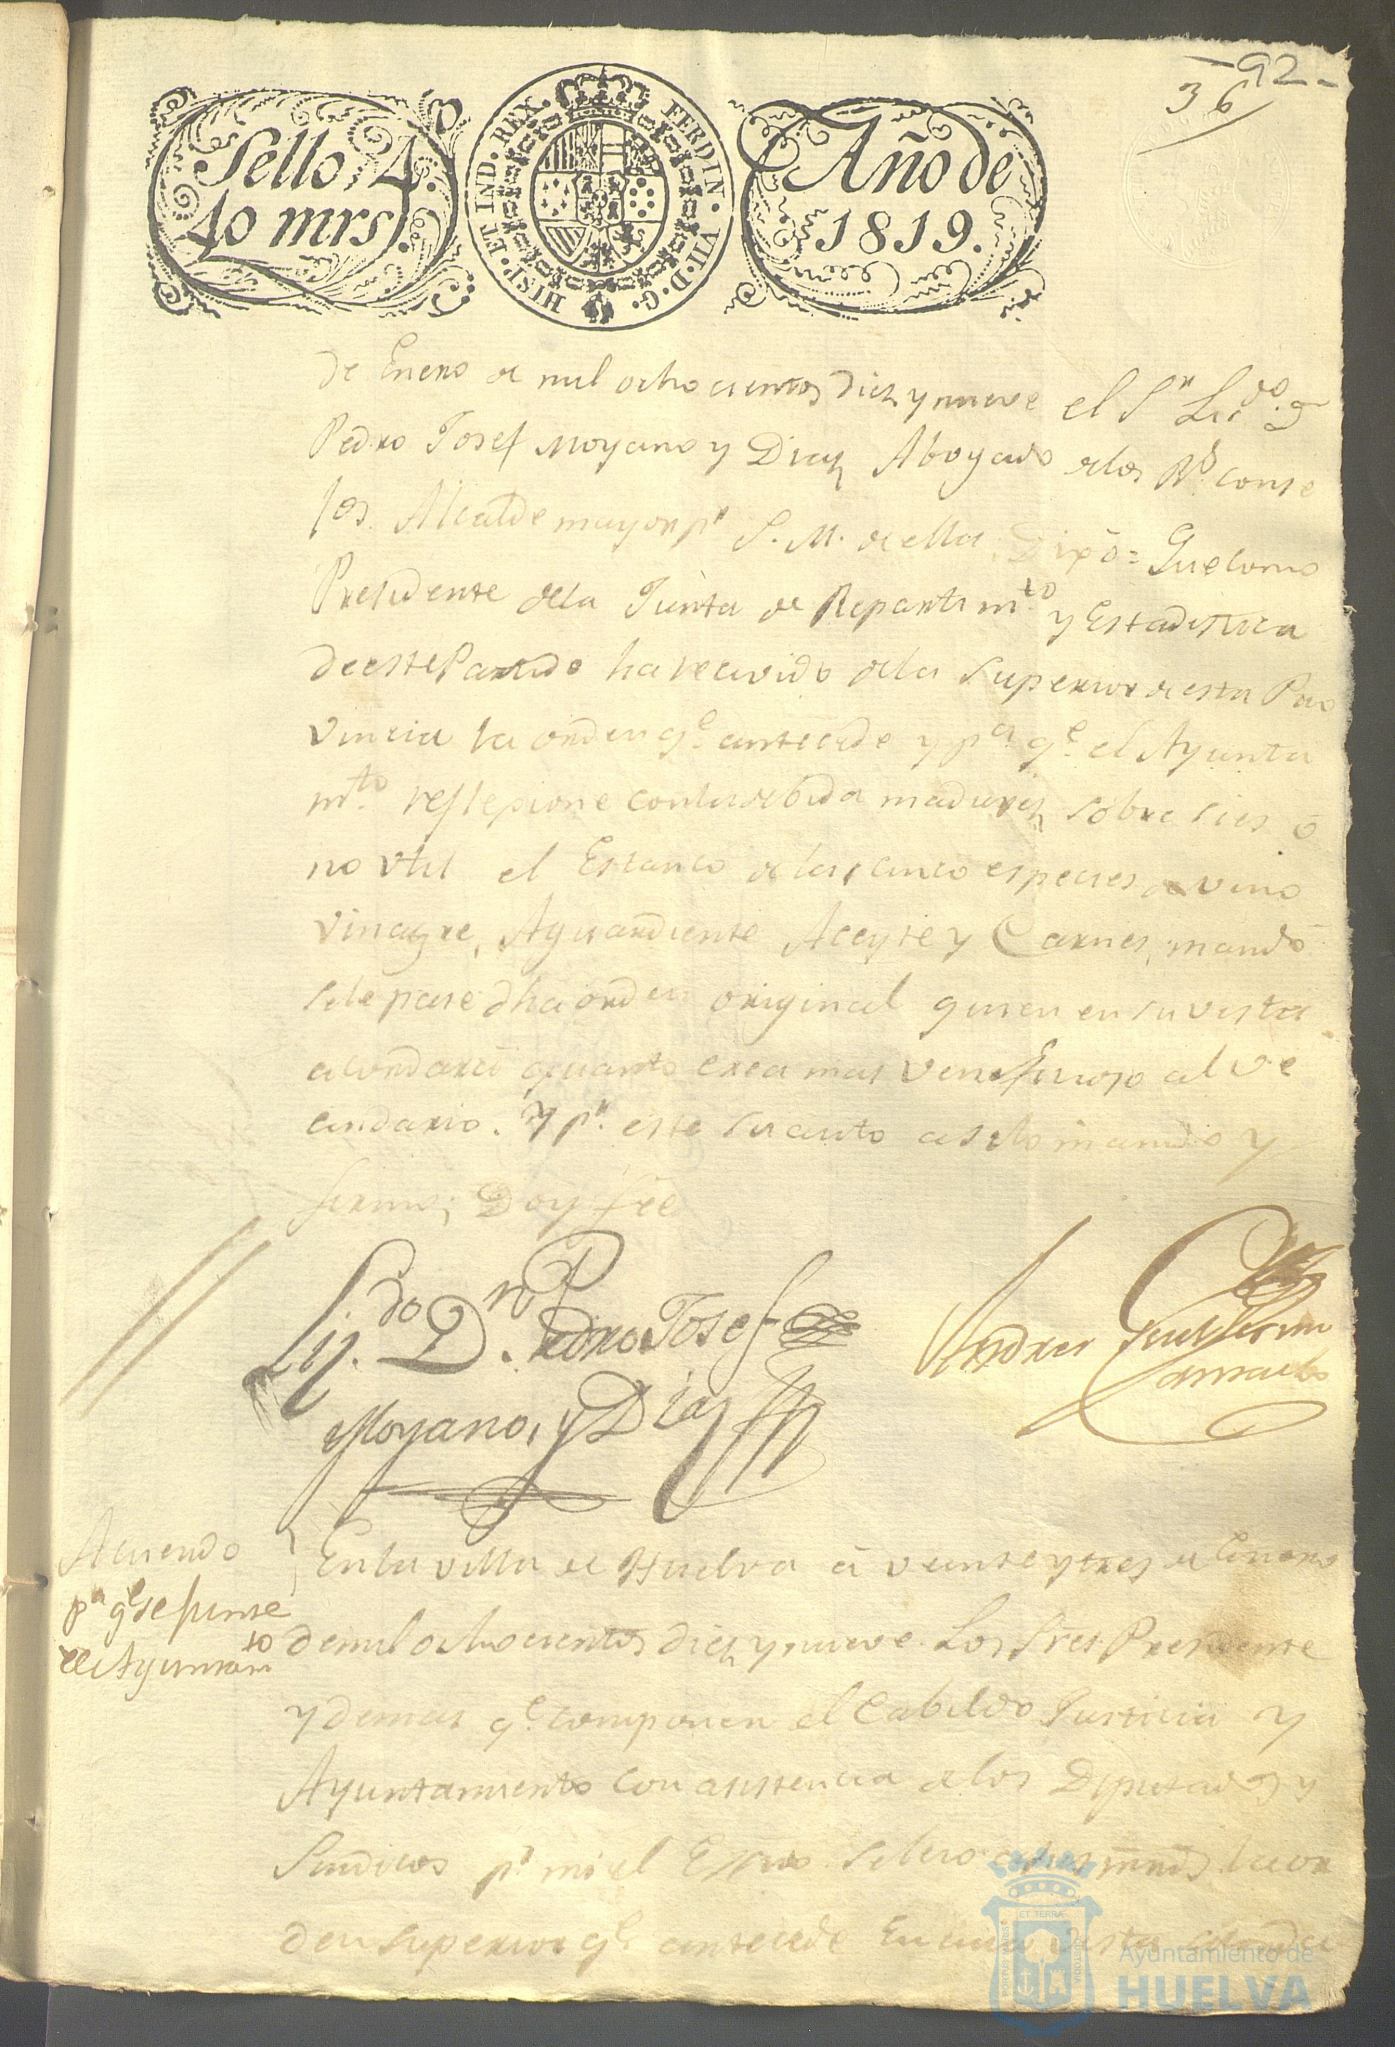 92
36
Sello 4.
40 mrs.
HISP. ET IND. REX. FERDIN. VII. D. G.
Año de
1819.
de Enero de mil ocho cientos diez y nueve el S.r Lic.do D.
Pedro Josef Moyano y Diaz Abogado de los R.s Conse
jos Alcalde mayor p.r S. M. de ella: Dixo= Que como
Presidente de la Junta de Repartim.to y Estadistica
de este Partido ha recivido de la Superior de esta Pro
vincia la orden q.e antecede y p.a q.e el Ayunta
m.to reflepione con la debida madurez sobre si es ó
no util el Estanco de las cinco especies de vino
vinagre, Aguardiente Aceyte y Carnes, mandó
se le pase dha orden original quien en su vista
acordará quanto crea mas veneficioso al ve
cindario. Y p.r este su auto asi lo mandó y
firmó; Doy fee
Lij.do D.n Pedro Josef
Moyano, y Diaz
Andres
Acuerdo
p.a q.e se junte
el Ayuntam.to
En la villa de Huelva á veinte y tres de Enero
de mil ocho cientos diez y nueve Los S.res Presidente
y demas q.e componen el Cabildo Justicia y
Ayuntamiento con asistencia de los Diputados y
Sindicos p.r mi el Essno se hizo la or
den superior q.e antecede En cuia vista
Ayuntamiento de
HUELVA